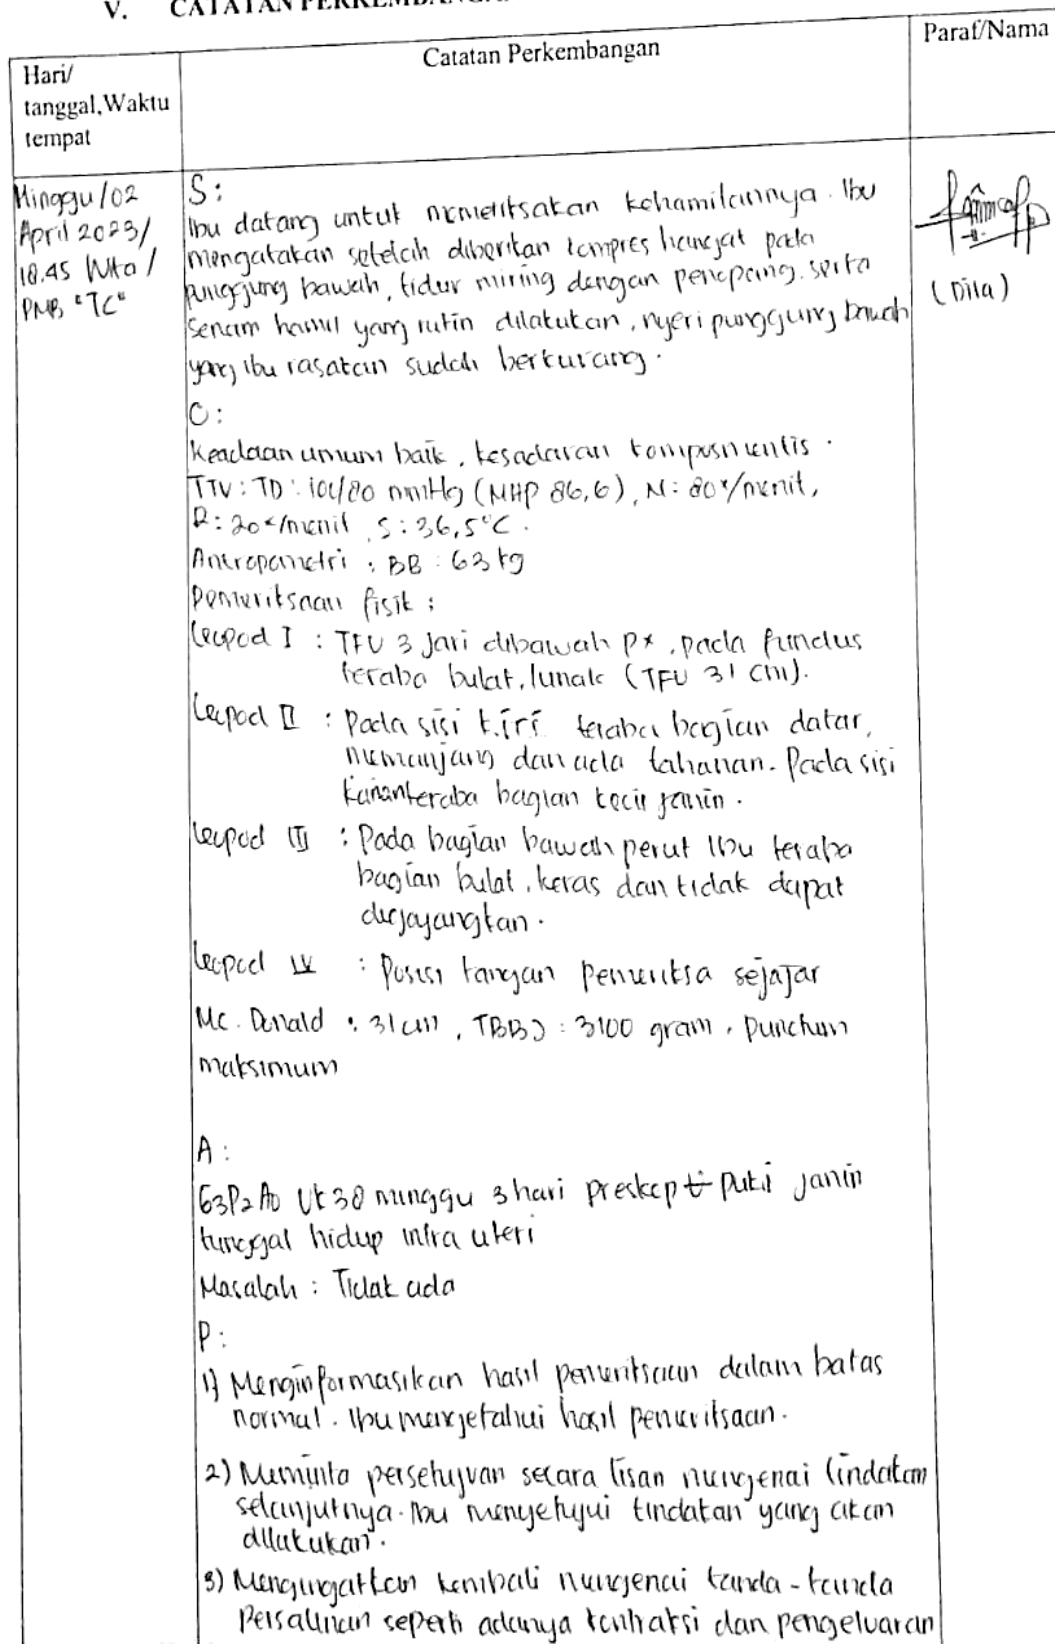 V. CATATAN PERKEMBANGA
Hari/
tanggal,Waktu
tempat
Catatan Perkembangan
Paraf/Nama
Minggu/02
April 2023/
18.45 Wita/
PMB "TC"
S:
Ibu datang untuk memeriksakan kehamilannya. Ibu
mengatakan setelah diberikan kompres hangat pada
punggung bawah, tidur miring dengan penopang. serta
senam hamil yang rutin dilakukan, nyeri punggung bawah
yang ibu rasakan sudah berkurang.
(Dila)
O:
Keadaan umum baik, kesadaran komposmentis.
TTV: TD: 100/80 mmHg (MAP 86,6), N: 80x/menit,
R: 20x/menit, S: 36,5°C.
Antropometri : BB : 63 kg
Pemeriksaan fisik :
Leopod I : TFU 3 Jari dibawah Px, pada fundus
teraba bulat, lunak (TFU 31 cm).
Leopod II : Pada sisi kiri teraba bagian datar,
memanjang dan ada tahanan. Pada sisi
kanan teraba bagian kecil janin.
Leopod III : Pada bagian bawah perut Ibu teraba
bagian bulat, keras dan tidak dapat
digoyangkan.
Leopod IV : Posisi tangan pemeriksa sejajar
Mc. Donald : 31 cm, TBBJ : 3100 gram, Punctum
maksimum
A:
G3P2A0 UK 38 minggu 3 hari preskep Puki janin
tunggal hidup intra uteri
Masalah : Tidak ada
P:
1) Menginformasikan hasil pemeriksaan dalam batas
normal. Ibu mengetahui hasil pemeriksaan.
2) Meminta persetujuan secara lisan mengenai tindakan
selanjutnya. Ibu menyetujui tindakan yang akan
dilakukan.
3) Mengingatkan kembali mengenai tanda-tanda
Persalinan seperti adanya kontraksi dan pengeluaran